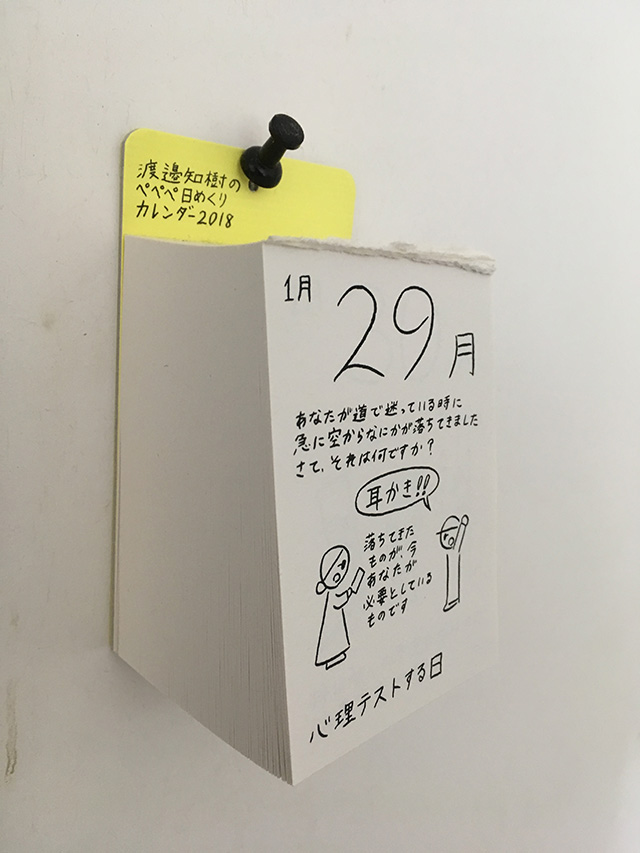 渡邉知樹の
ペペペ日めくり
カレンダー2018
1月
29
月
あなたが道で迷っている時に
急に空からなにかが落ちてきました
さて、それは何ですか？
耳かき!!
落ちてきた
ものが、今
あなたが
必要としている
ものです
心理テストする日